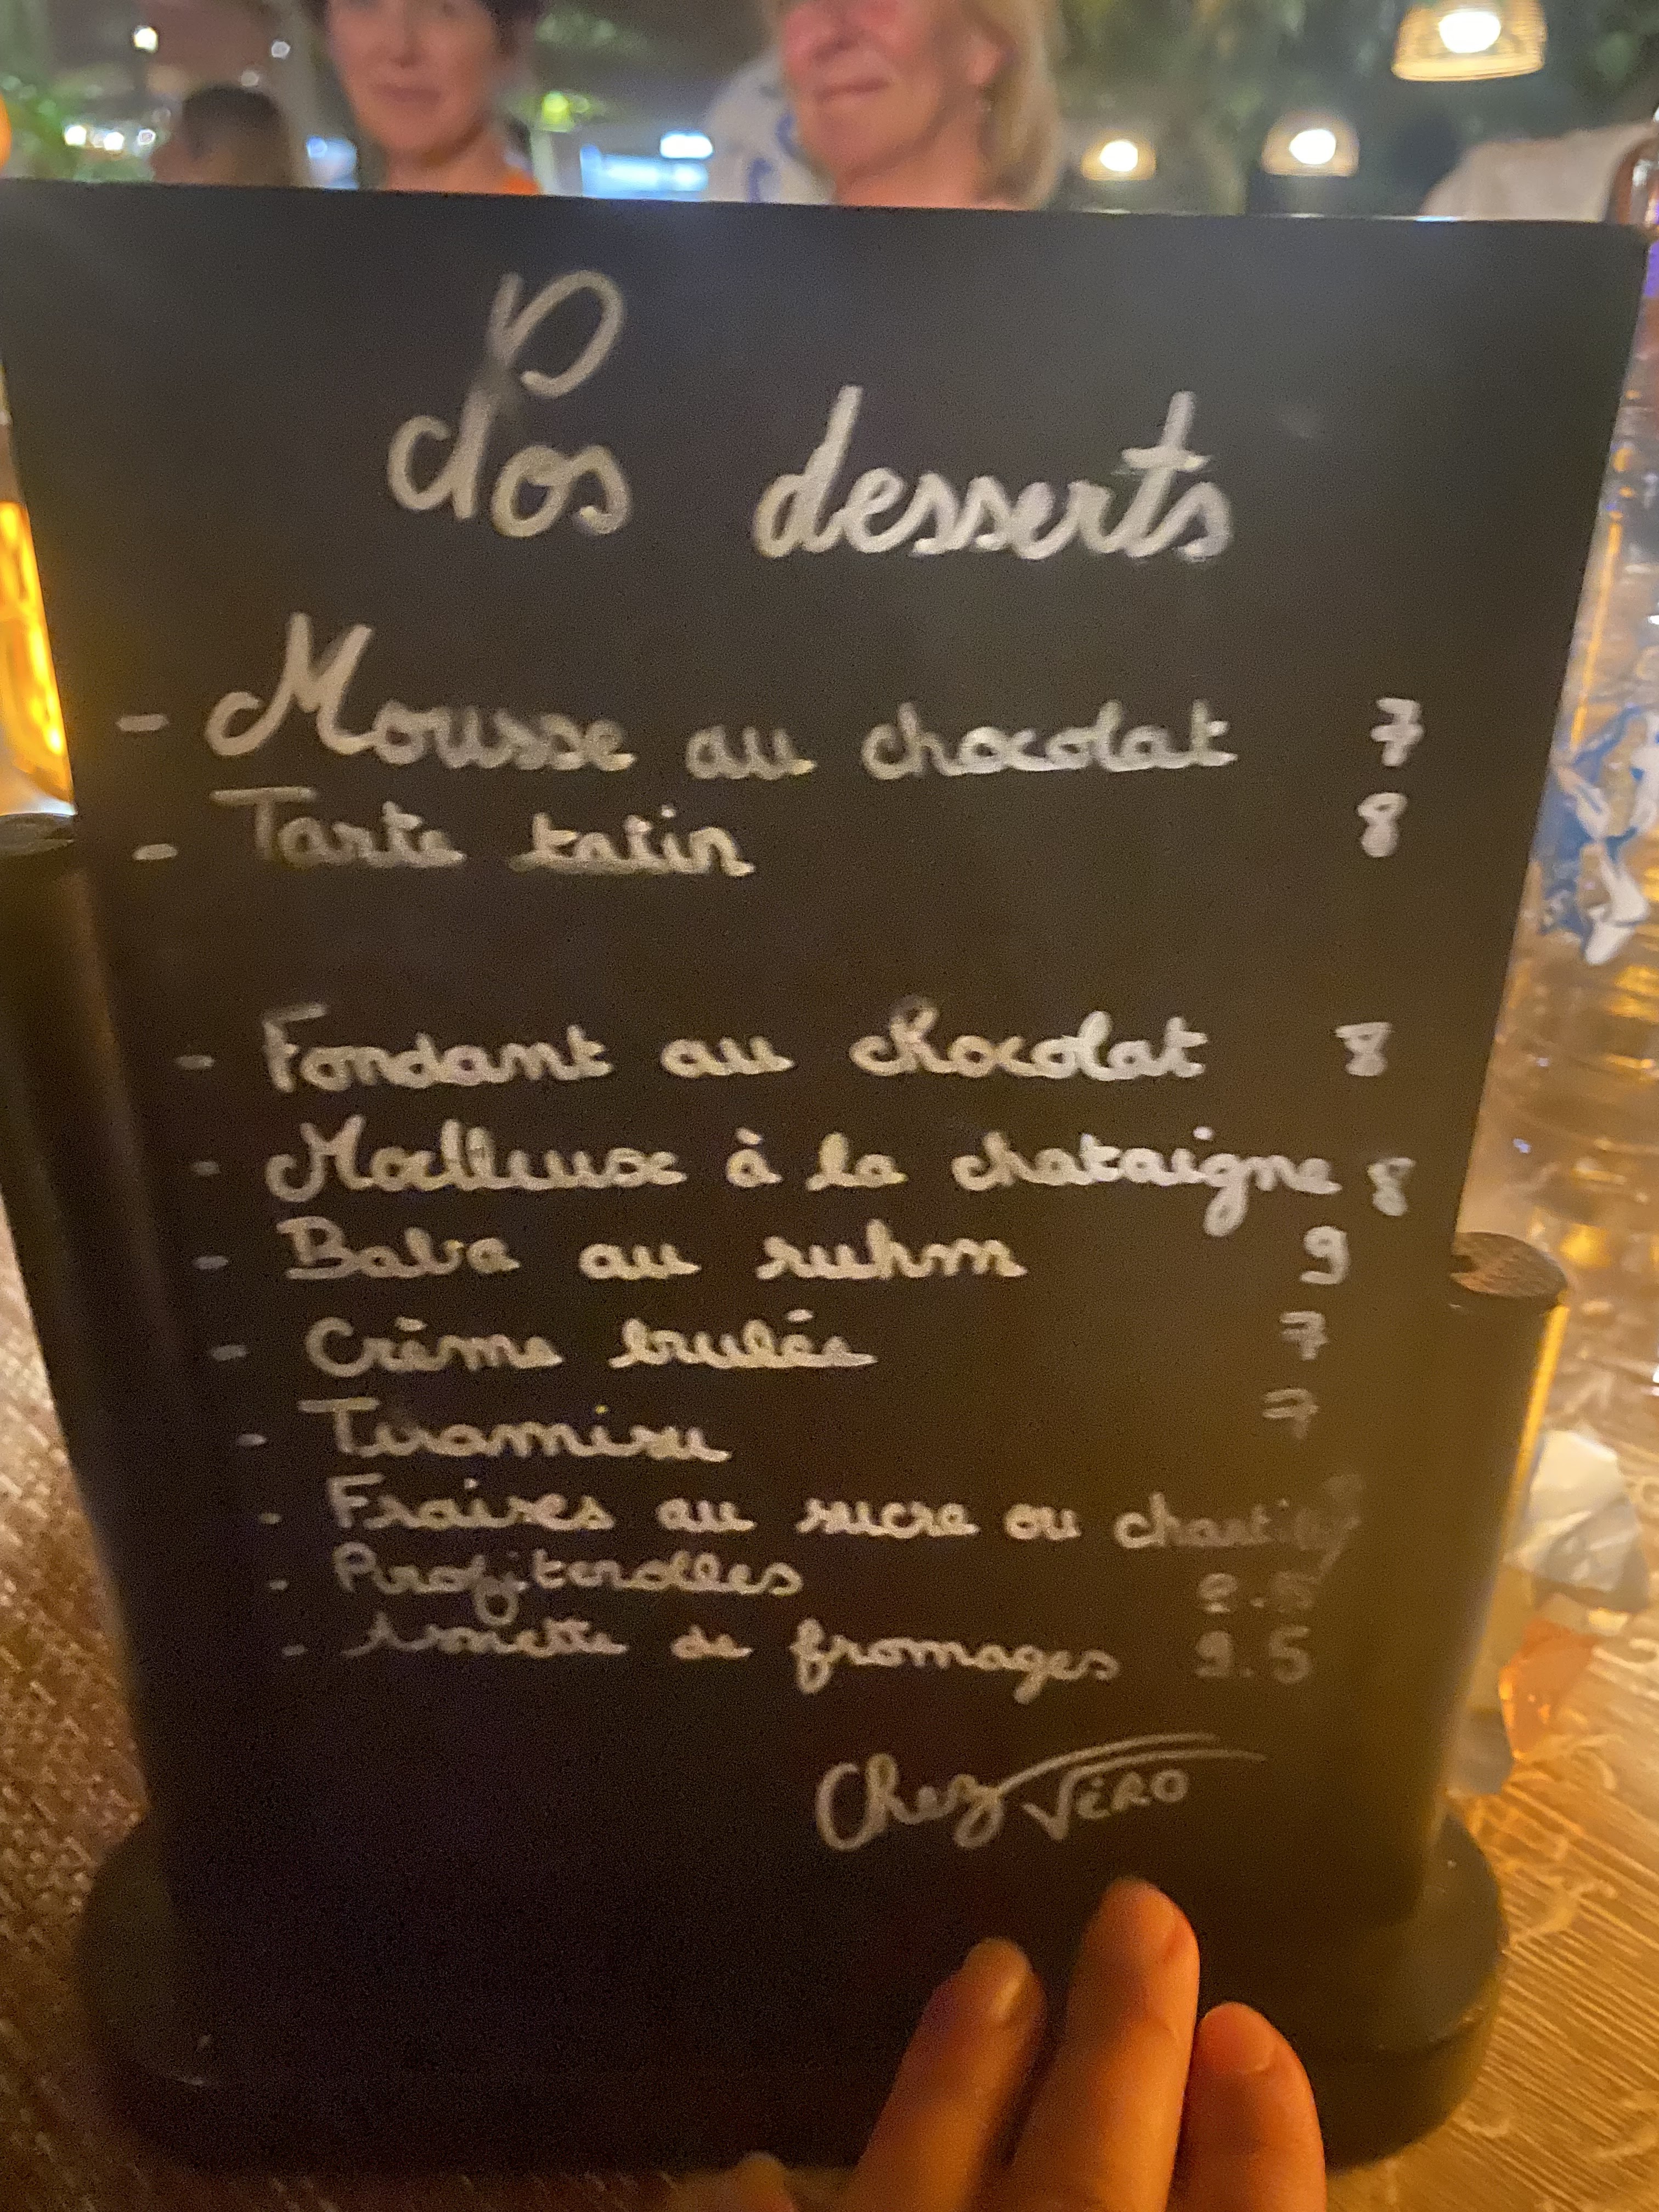 Nos desserts
- Mousse au chocolat 7
- Tarte tatin 8
- Fondant au chocolat 8
- Moelleuse à la chataigne 8
- Baba au ruhm 9
- Crème brulée 7
- Tiramisu 7
- Fraises au sucre ou chantilly
- Profiterolles
- Assiette de fromages 9.5
Chez VéRO